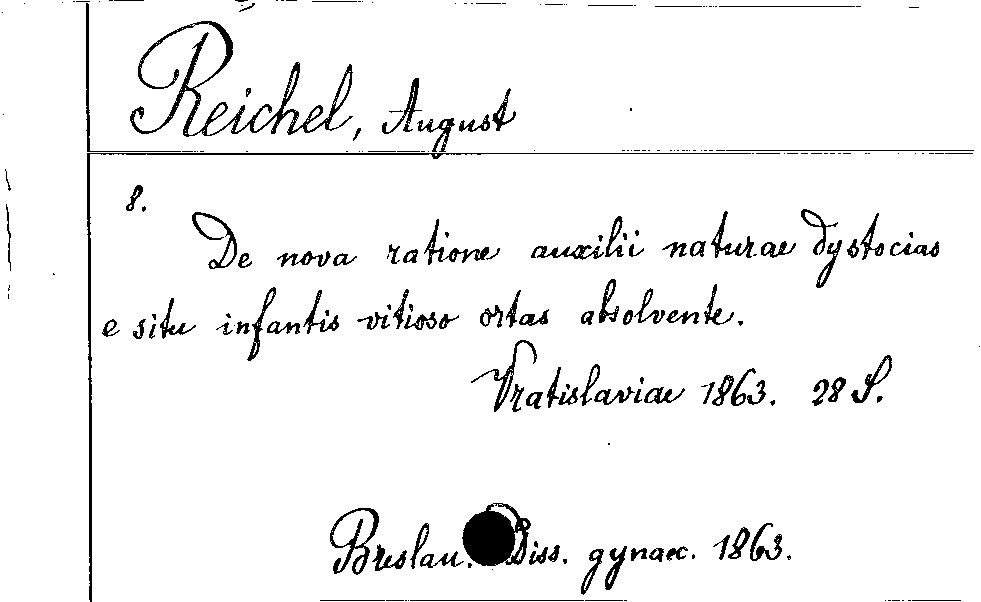 Reichel, August
8.
De nova ratione auxilii naturae dystocias
e situ infantis vitioso ortas absolvente.
Vratislaviae 1863. 28 S.
Breslau. Diss. gynaec. 1863.